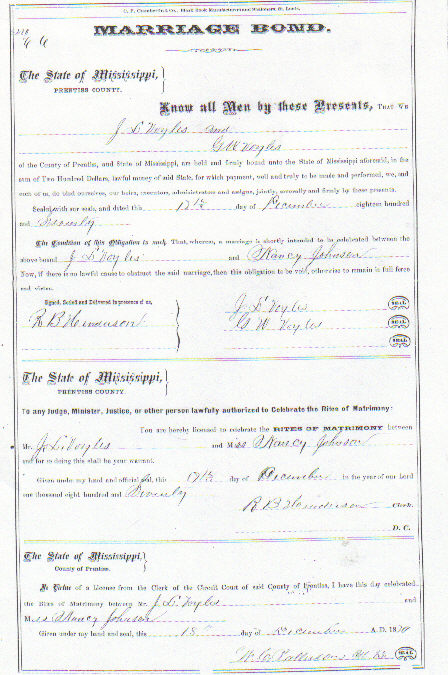 MARRIAGE BOND.
The State of Mississippi,
PRENTISS COUNTY.
Know all Men by these Presents, THAT WE
J. D. Voyles and
G W Voyles
of the County of Prentiss, and State of Mississippi, are held and firmly bound unto the State of Mississippi aforesaid, in the
sum of Two Hundred Dollars, lawful money of said State, for which payment, well and truly to be made and performed, we, and
each of us, do bind ourselves, our heirs, executors, administrators and assigns, jointly, severally and firmly by these presents.
Sealed with our seals, and dated this 17th day of December eighteen hundred
and Seventy
The Condition of this Obligation is such, That, whereas, a marriage is shortly intended to be celebrated between the
above bound J D Voyles and Nancy Johnson
Now, if there is no lawful cause to obstruct the said marriage, then this obligation to be void, otherwise to remain in full force
and virtue.
Signed, Sealed and Delivered in presence of us,
R B Henderson
J D Voyles SEAL
G. W Voyles SEAL
SEAL
The State of Mississippi,
PRENTISS COUNTY.
To any Judge, Minister, Justice, or other person lawfully authorized to Celebrate the Rites of Matrimony:
You are hereby licensed to celebrate the RITES OF MATRIMONY between
Mr. J. D. Voyles and Miss Nancy Johnson
and for so doing this shall be your warrant.
Given under my hand and official seal, this 17th day of December in the year of our Lord
one thousand eight hundred and Seventy
R. B Henderson Clerk.
D. C.
The State of Mississippi,
County of Prentiss.
In Virtue of a License from the Clerk of the Circuit Court of said County of Prentiss, I have this day celebrated
the Rites of Matrimony between Mr. J D Voyles and
Miss Nancy Johnson
Given under my hand and seal, this 18 day of December A.D. 1870
SEAL